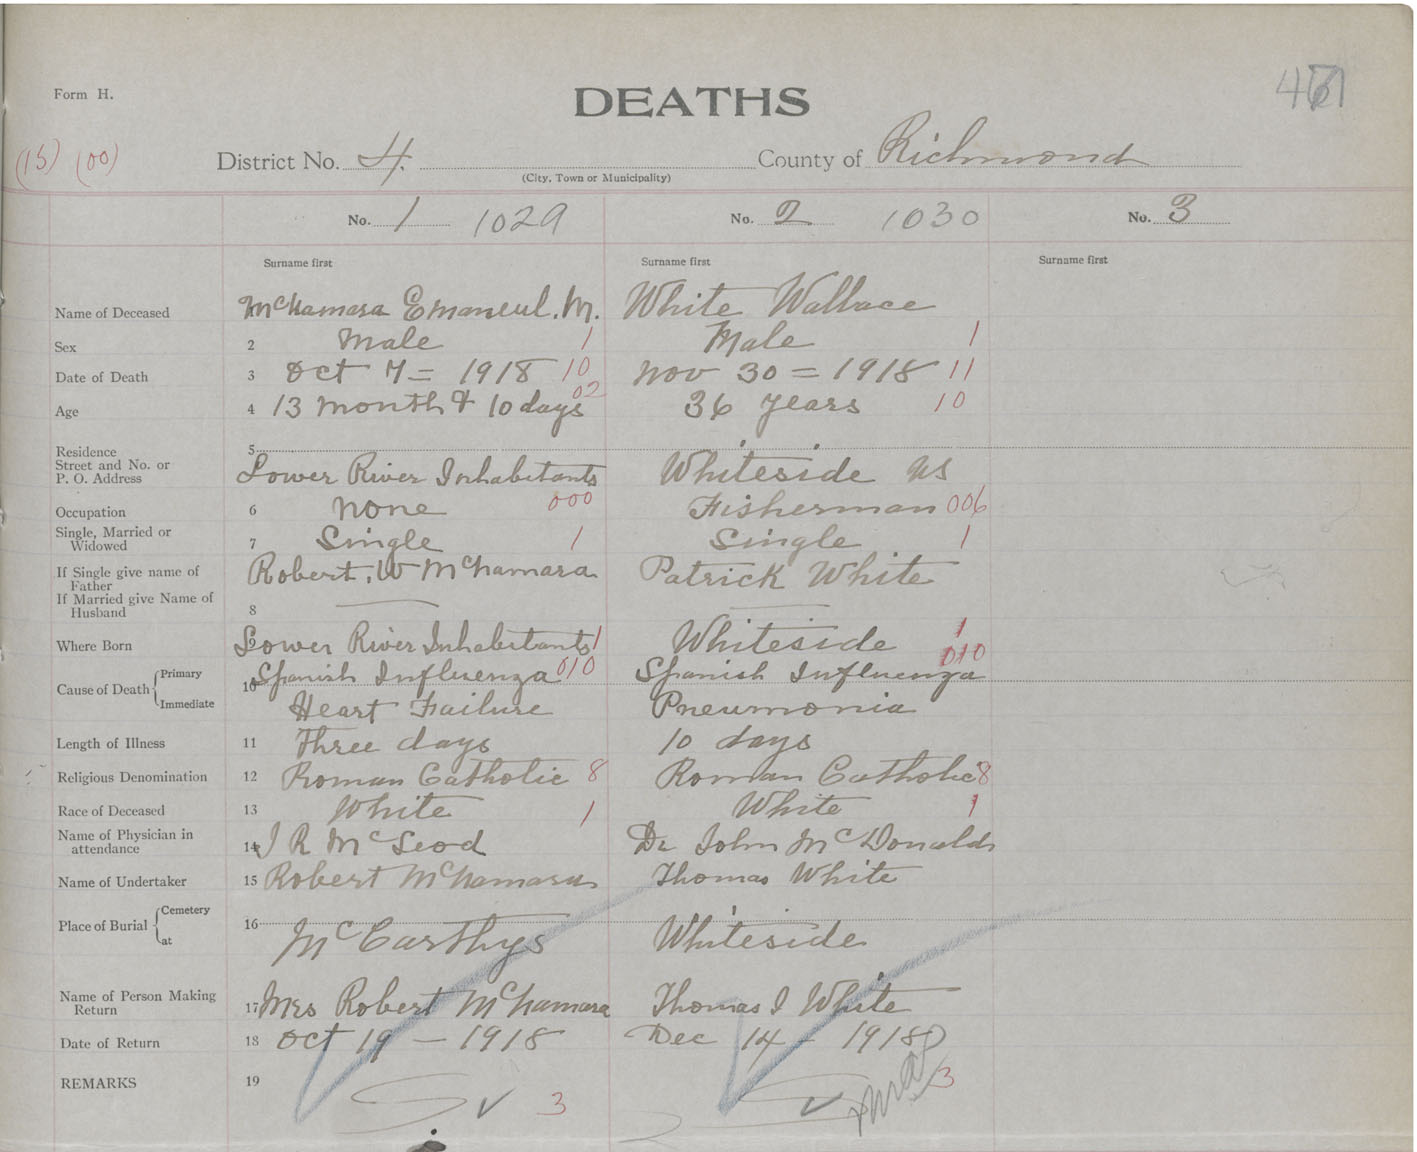 Form H.
DEATHS
(15) (00)
District No. 4. County of Richmond
(City, Town or Municipality)
No. 1 1029 No. 2 1030 No. 3
Surname first Surname first Surname first
Name of Deceased McNamara Emaneul. M. White Wallace
Sex 2 Male 1 Male 1
Date of Death 3 Oct 7 = 1918 10 Nov 30 = 1918 11
Age 4 13 month & 10 days 02 36 years 10
Residence
Street and No. or
P. O. Address
5 Lower River Inhabitants Whiteside NS
Occupation 6 None 000 Fisherman 006
Single, Married or
Widowed
7 Single 1 Single 1
If Single give name of
Father
Robert. W McNamara Patrick White
If Married give Name of
Husband
8
Where Born 9 Lower River Inhabitants 1 Whiteside 1
Cause of Death Primary
Immediate
10 Spanish Influenza 010 Spanish Influenza 010
Heart Failure Pneumonia
Length of Illness 11 Three days 10 days
Religious Denomination 12 Roman Catholic 8 Roman Catholic 8
Race of Deceased 13 White 1 White 1
Name of Physician in
attendance
14 J R McLeod Dr John McDonald
Name of Undertaker 15 Robert McNamara Thomas White
Place of Burial Cemetery
at
16 McCarthys Whiteside
Name of Person Making
Return
17 Mrs Robert McNamara Thomas J White
Date of Return 18 Oct 19 - 1918 Dec 14 - 1918
REMARKS 19
3 3